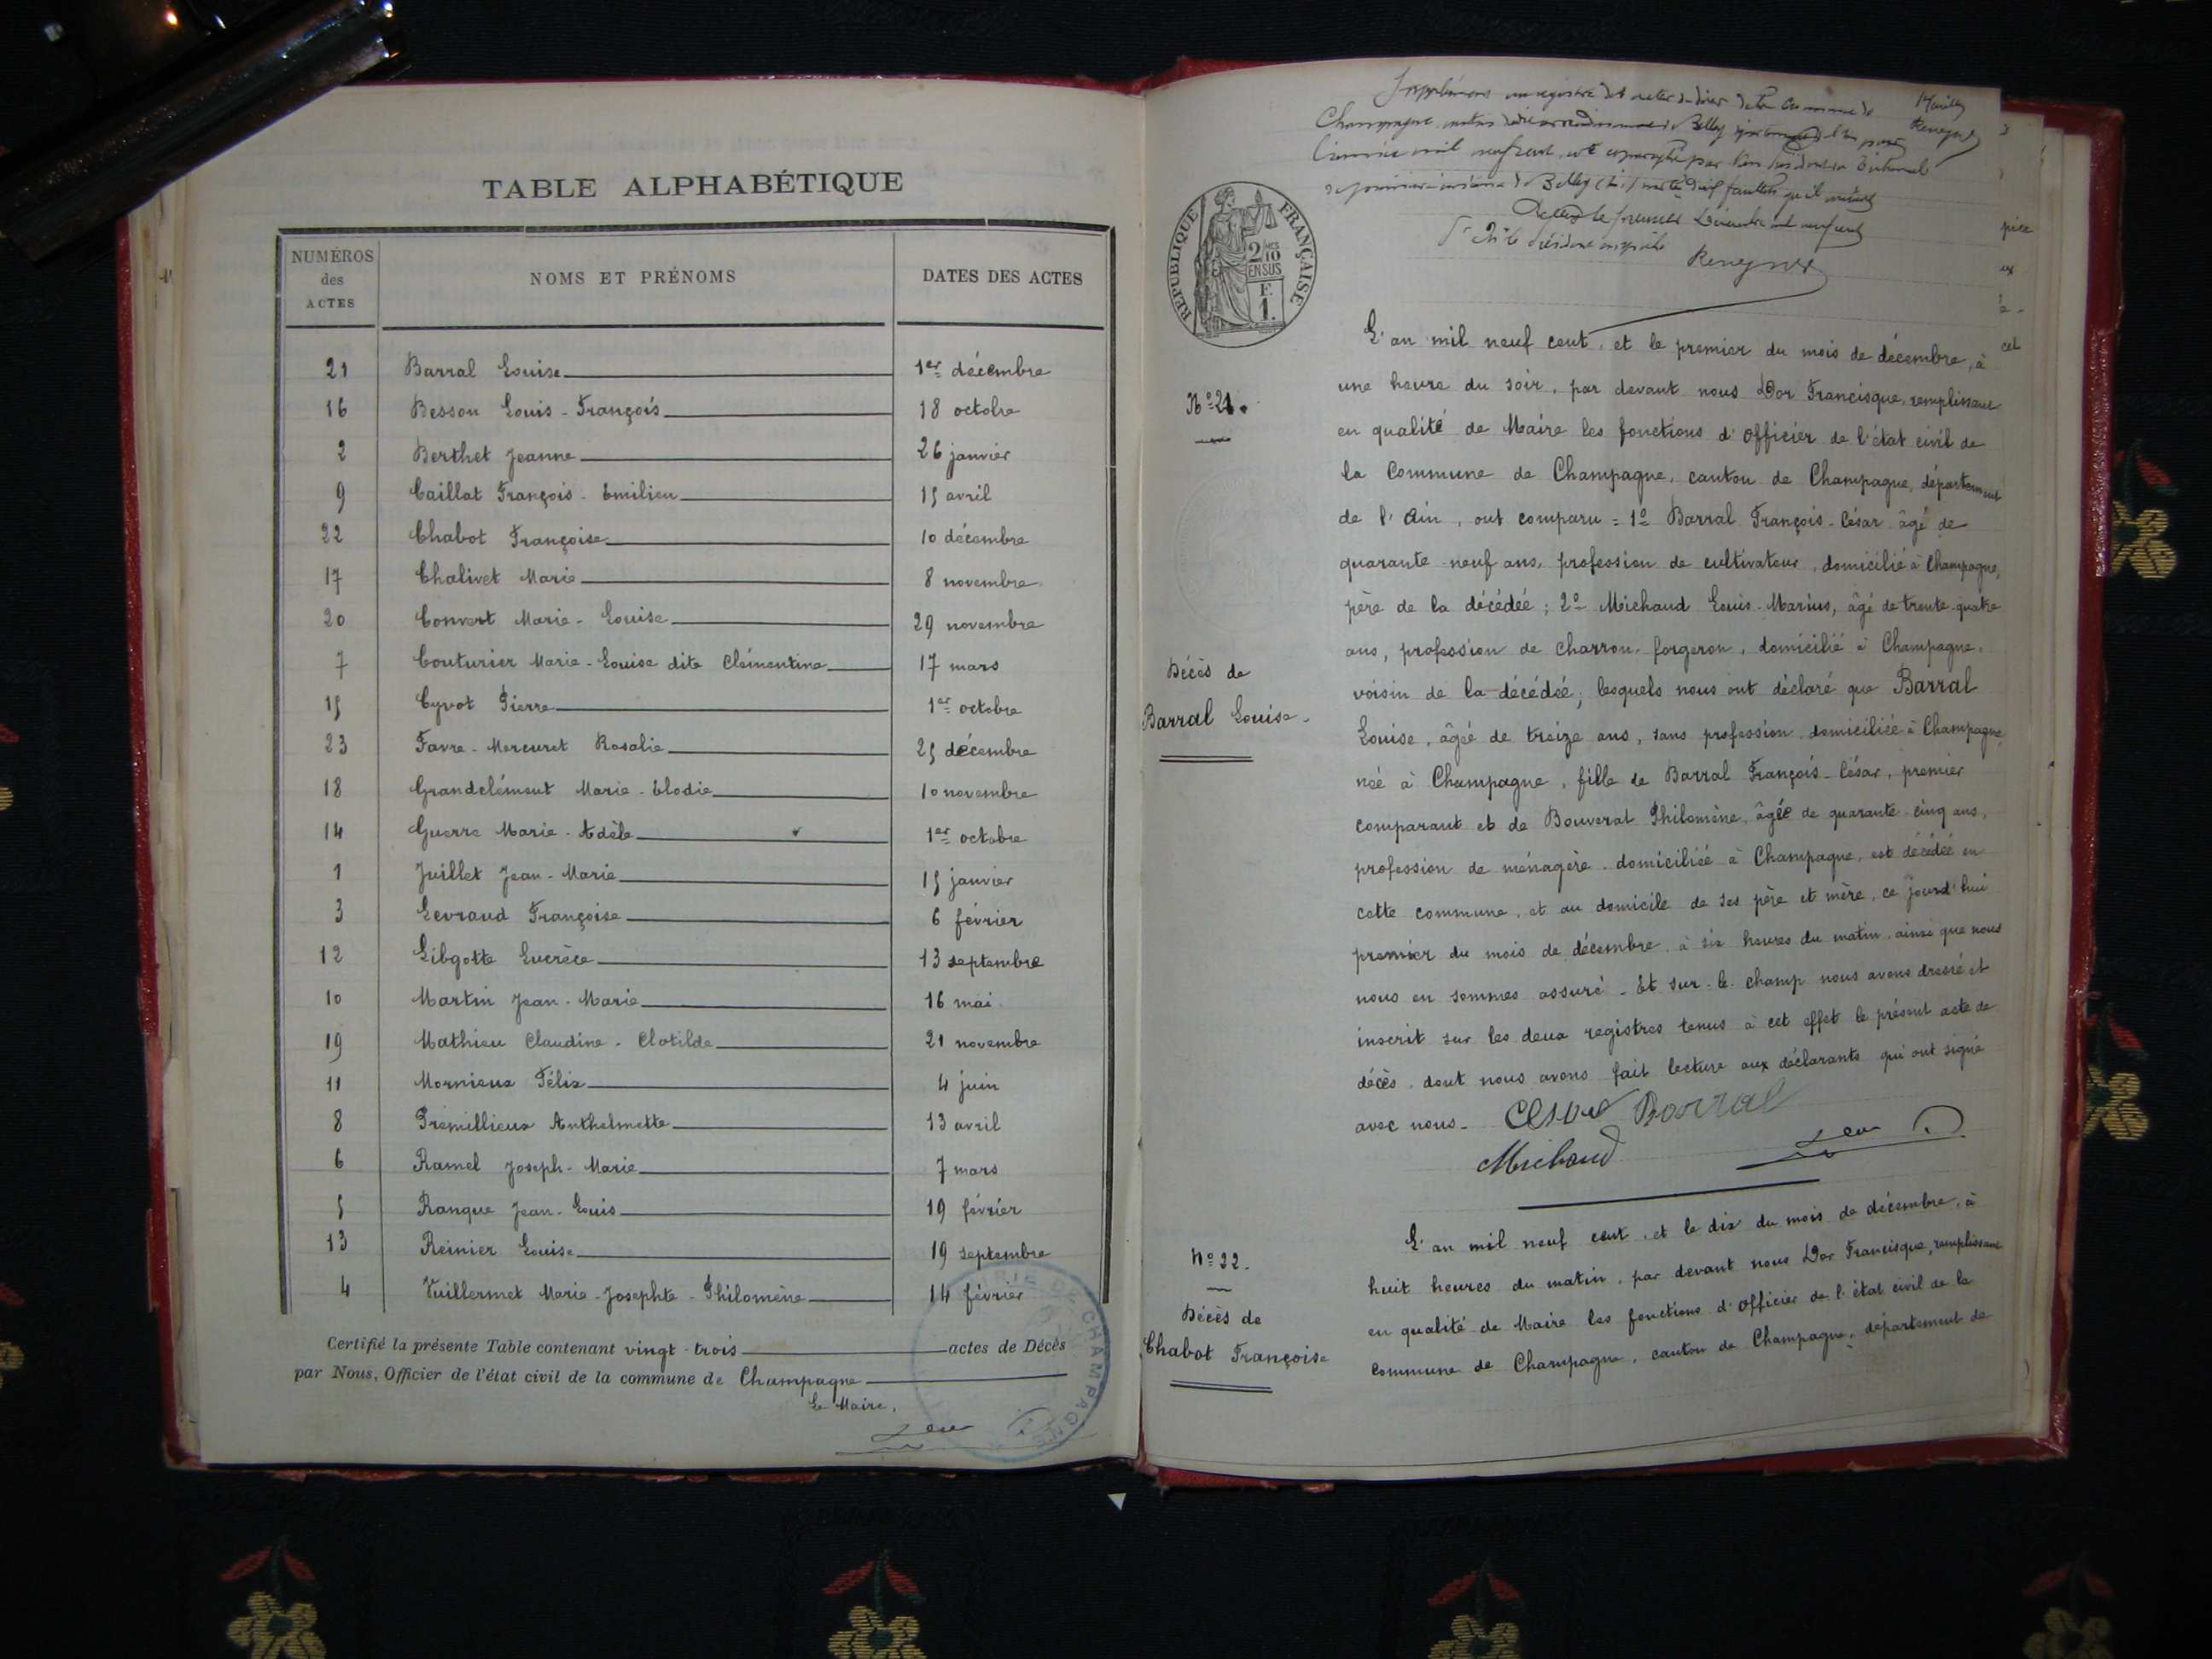 TABLE ALPHABÉTIQUE
NUMÉROS des ACTES NOMS ET PRÉNOMS DATES DES ACTES
21 Barral Louise 1er décembre
16 Besson Louis-François 18 octobre
2 Berthet Jeanne 26 janvier
9 Caillat François-Emilien 15 avril
22 Chabot Françoise 10 décembre
17 Chalivet Marie 8 novembre
20 Convert Marie-Louise 29 novembre
7 Couturier Marie-Louise dite Clémentine 17 mars
15 Cyvot Pierre 1er octobre
23 Favre-Mercuret Rosalie 25 décembre
18 Grandclément Marie-Elodie 10 novembre
14 Guerre Marie-Adèle 1er octobre
1 Juillet Jean-Marie 15 janvier
3 Levraud Françoise 6 février
12 Libgotte Lucrèce 13 septembre
10 Martin Jean-Marie 16 mai
19 Mathieu Claudine-Clotilde 21 novembre
11 Mornieux Félix 4 juin
8 Prémillieux Anthelmette 13 avril
6 Ramel Joseph-Marie 7 mars
5 Ranque Jean-Louis 19 février
13 Reinier Louise 19 septembre
4 Vuillermet Marie-Josephte-Philomène 14 février
Certifié la présente Table contenant vingt-trois actes de Décès
par Nous, Officier de l'état civil de la commune de Champagne
Le Maire,
CHAMPAGNE
Supplément au registre des actes de la Commune de
Champagne Belley
mil neuf cent par
de première Belley feuillets
le premier Décembre mil neuf cent
Reneynd
REPUBLIQUE FRANÇAISE
2/10 EN SUS
F.
1.
L'an mil neuf cent, et le premier du mois de décembre, à
N° 21.
une heure du soir, par devant nous Dor Francisque, remplissant
en qualité de Maire les fonctions d'officier de l'état civil de
la Commune de Champagne, canton de Champagne, département
de l'Ain, ont comparu = 1° Barral François-César âgé de
quarante-neuf ans, profession de cultivateur, domicilié à Champagne,
père de la décédée ; 2° Michaud Louis-Marius, âgé de trente-quatre
ans, profession de charron-forgeron, domicilié à Champagne,
Décès de
Barral Louise.
voisin de la décédée ; lesquels nous ont déclaré que Barral
Louise, âgée de treize ans, sans profession domiciliée à Champagne
née à Champagne, fille de Barral François-César, premier
comparant et de Bouverat Philomène, âgée de quarante-cinq ans,
profession de ménagère domiciliée à Champagne, est décédée en
cette commune, et au domicile de ses père et mère, ce jourd'hui
premier du mois de décembre à six heures du matin, ainsi que nous
nous en sommes assuré - Et sur-le-champ nous avons dressé et
inscrit sur les deux registres tenus à cet effet le présent acte de
décès, dont nous avons fait lecture aux déclarants qui ont signé
avec nous. César Barral
Michaud
N° 22.
Décès de
Chabot Françoise
L'an mil neuf cent, et le dix du mois de décembre, à
huit heures du matin, par devant nous Dor Francisque, remplissant
en qualité de Maire les fonctions d'officier de l'état civil de la
commune de Champagne, canton de Champagne, département de